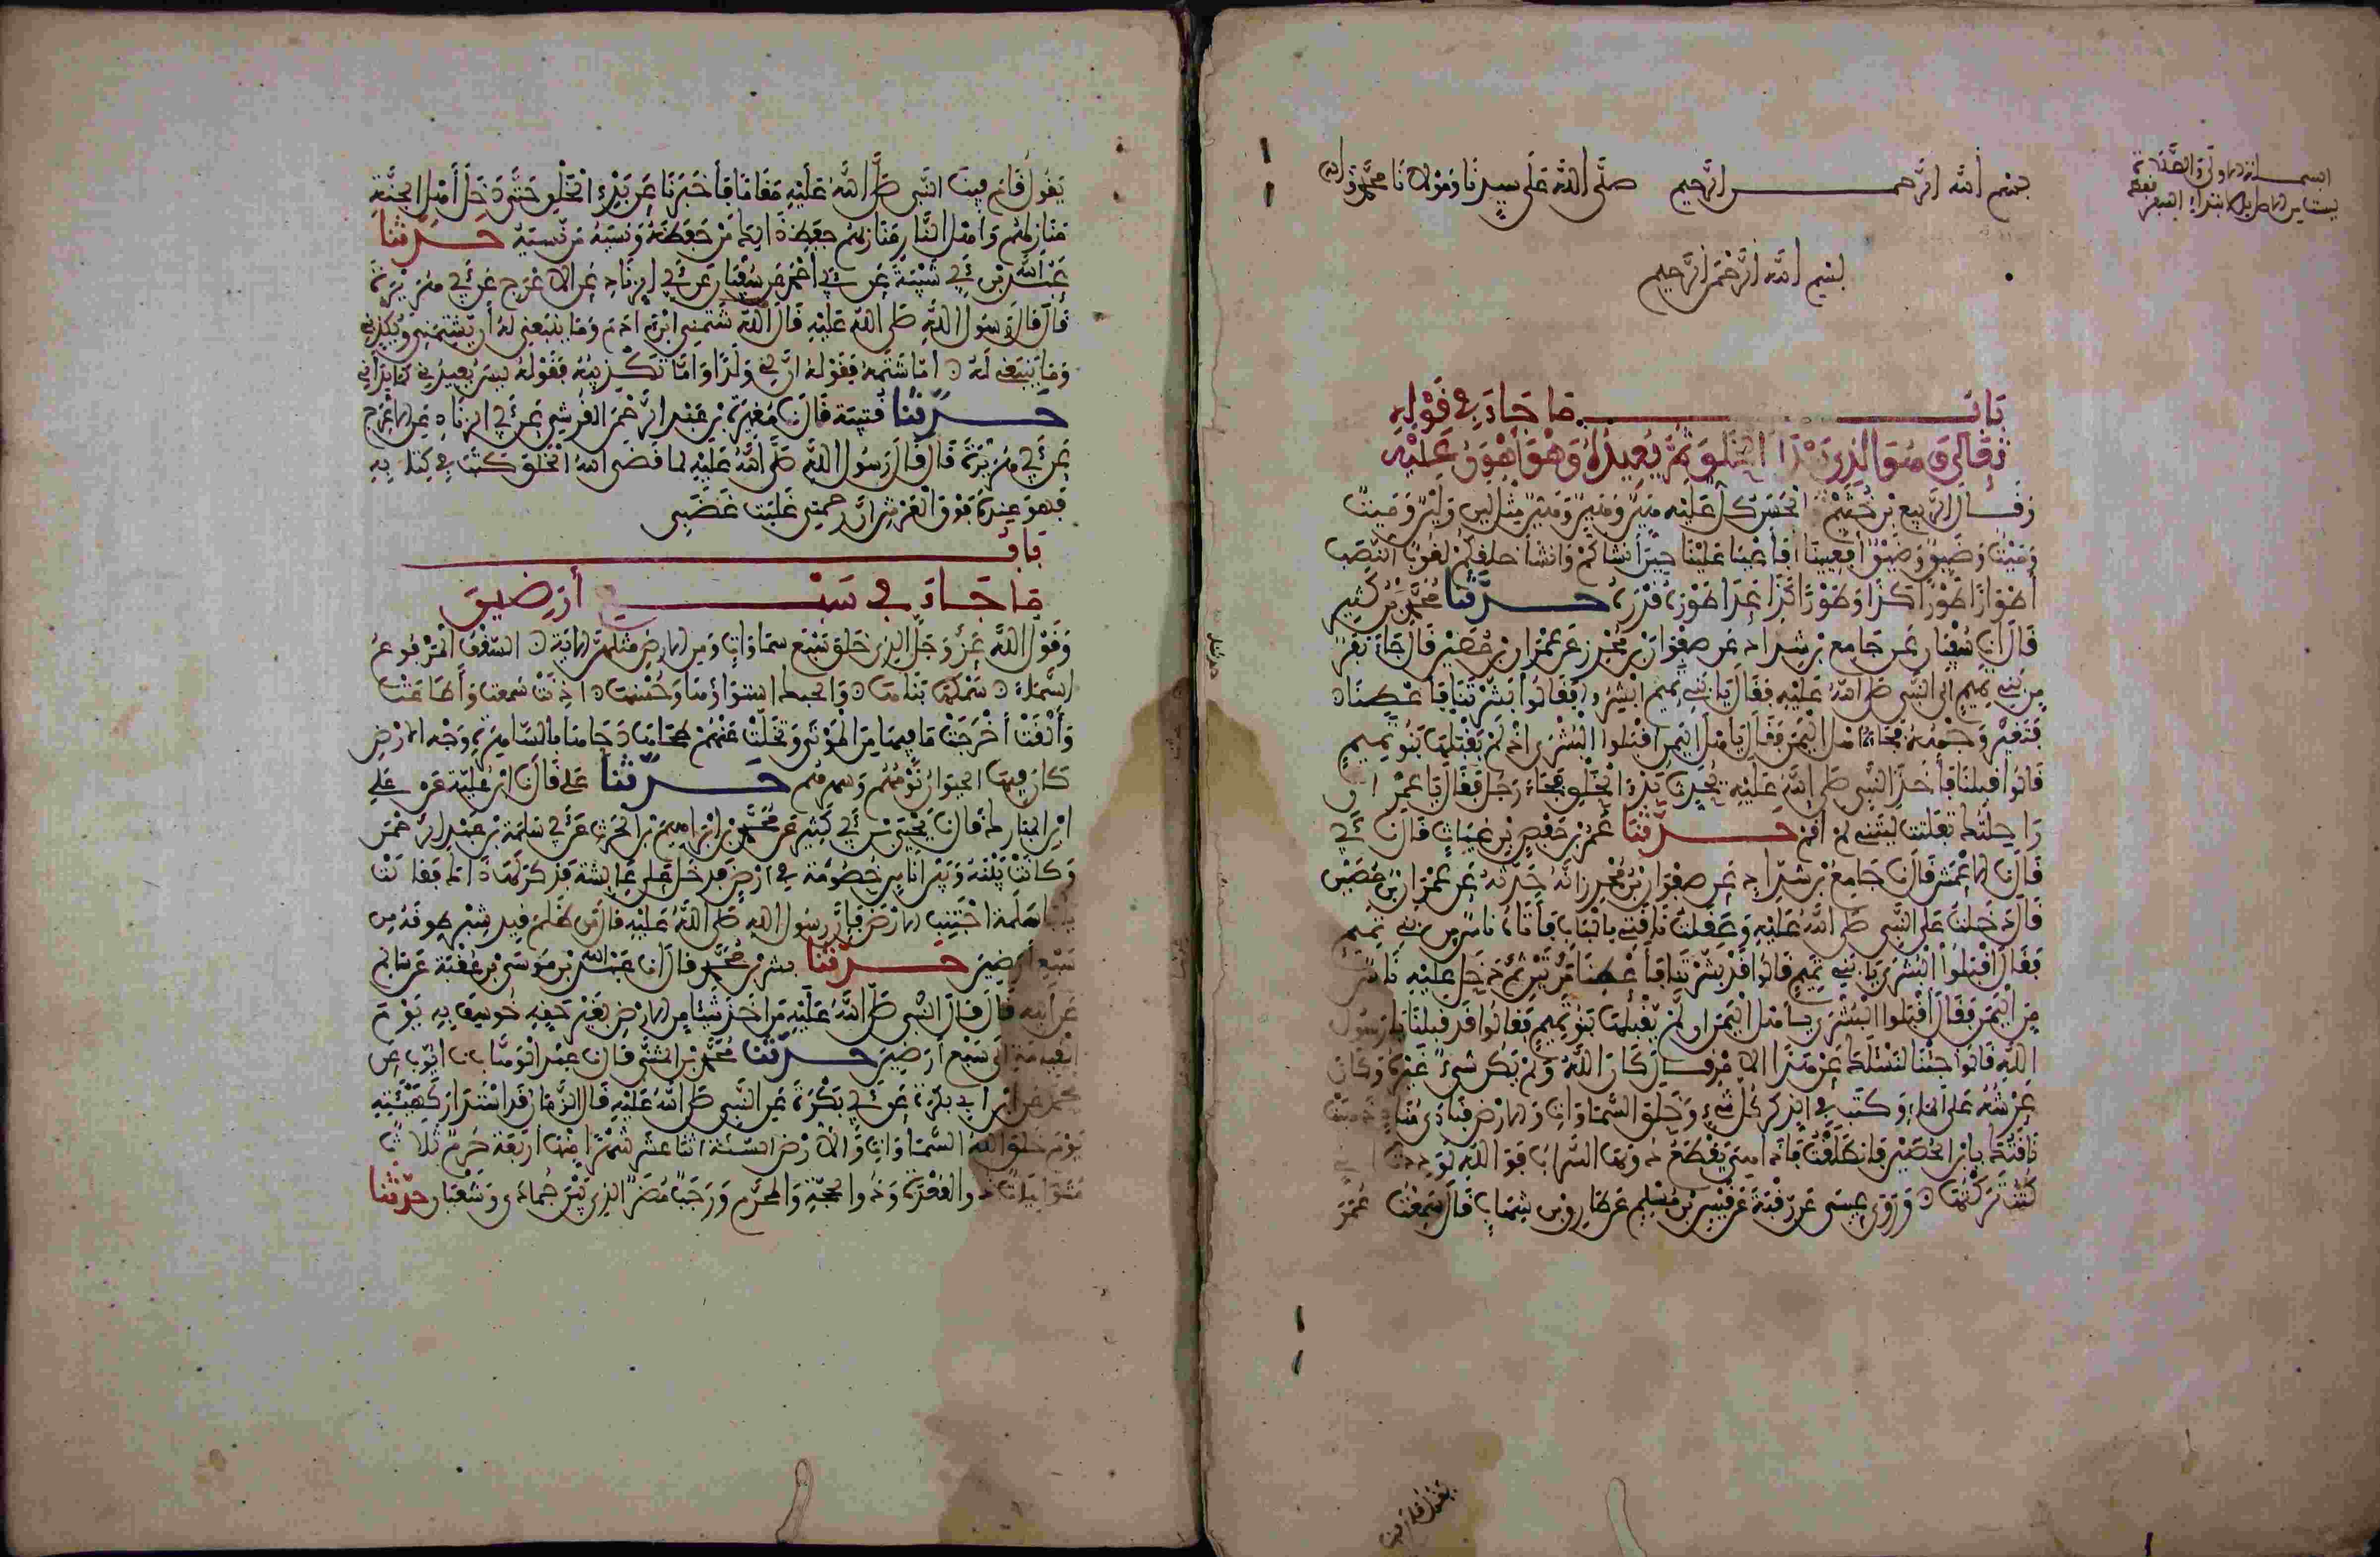 بسم الله الرحمـــن الرحيم صلى الله على سيدنا ومولانا محمد وآله
بسم الله الرحمن الرحيم
باب ما جاء في قوله
تعالى وهو الذي يبدأ الخلق ثم يعيده وهو أهون عليه
وقال الربيع بن خثيم الحسن كل عليه هين وهين وهين مثل لين ولين وميت
وميت وضيق وضيق أفعيينا أفأعيا علينا حين أنشأكم وأنشأ خلقكم لغوب النصب
أطوارا طورا كذا وطورا كذا عدا طوره قدره حدثنا محمد بن كثير
قال أنا سفيان عن جامع بن شداد عن صفوان بن محرز عن عمران بن حصين قال جاء نفر
من بني تميم إلى النبي صلى الله عليه فقال يا بني تميم أبشروا فقالوا بشرتنا فأعطنا
فتغير وجهه فجاءه أهل اليمن فقال يا أهل اليمن اقبلوا البشرى إذ لم يقبلها بنو تميم
قالوا قبلنا فأخذ النبي صلى الله عليه يحدث بدء الخلق فجاء رجل فقال يا عمر ان
راحلتك تفلتت ليتني لم أقم حدثنا عمر بن حفص بن غياث قال نا أبي
قال نا الأعمش قال نا جامع بن شداد عن صفوان بن محرز أنه حدثه عن عمران بن حصين
قال دخلت على النبي صلى الله عليه وعقلت ناقتي بالباب فأتاه ناس من بني تميم
فقال اقبلوا البشرى يا بني تميم قالوا قد بشرتنا فأعطنا مرتين ثم دخل عليه ناس
من اليمن فقال اقبلوا البشرى يا أهل اليمن أن لم يقبلها بنو تميم فقالوا قد قبلنا يا رسول
الله قالوا جئنا لنسئلك عن هذا الأمر قال كان الله ولم يكن شيء غيره وكان
عرشه على الماء وكتب في الذكر كل شيء وخلق السماوات والأرض فنادى مناد ذهبت
ناقتك يا بن الحصين فانطلقت فإذا هي يقطع دونها السراب فو الله لوددت أني
كنت تركتها وروى عيسى عن رقبة عن قيس بن مسلم عن طارق بن شهاب قال سمعت عمر
يقول قام فينا
يقول قام فينا النبي صلى الله عليه مقاما فأخبرنا عن بدء الخلق حتى دخل أهل الجنة
منازلهم وأهل النار منازلهم حفظ ذلك من حفظه ونسيه من نسيه حدثنا
عبد الله بن أبي شيبة عن أبي أحمد عن سفيان عن أبي الزناد عن الأعرج عن أبي هريرة
قال قال رسول الله صلى الله عليه قال الله شتمني ابن آدم وما ينبغي له أن يشتمني ويكذبني
وما ينبغي له أما شتمه فقوله إن لي ولدا وأما تكذيبه فقوله ليس يعيدني كما بدأني
حدثنا قتيبة قال نا مغيرة بن عبد الرحمن القرشي عن أبي الزناد عن الأعرج
عن أبي هريرة قال قال رسول الله صلى الله عليه لما قضى الله الخلق كتب في كتابه
فهو عنده فوق العرش إن رحمتي غلبت غضبي
باب
ما جاء في سبع أرضين
وقول الله عز وجل الذي خلق سبع سماوات ومن الأرض مثلهن الآية السقف المرفوع
السماء سمكها بناءها والحبك استواؤها وحسنها أذنت سمعت وأطاعت
وألقت أخرجت ما فيها من الموتى وتخلت عنهم طحاها دحاها بالساهرة وجه الأرض
كان فيها الحيوان نومهم وسهرهم حدثنا علي قال نا ابن علية عن علي
ابن المبارك قال نا يحيى بن أبي كثير عن محمد بن إبراهيم بن الحرث عن أبي سلمة بن عبد الرحمن
وكانت بينه وبين أناس خصومة في أرض فدخل على عائشة فذكر لها ذلك فقالت
يا با سلمة اجتنب الأرض فإن رسول الله صلى الله عليه قال من ظلم قيد شبر طوقه من
سبع أرضين حدثنا بشر بن محمد قال أنا عبد الله بن موسى بن عقبة عن سالم
عن أبيه قال قال النبي صلى الله عليه من أخذ شيئا من الأرض بغير حقه خسف به يوم
القيامة إلى سبع أرضين حدثنا محمد بن المثنى قال نا عبد الوهاب نا أيوب عن
محمد عن ابن أبي بكرة عن أبي بكرة عن النبي صلى الله عليه قال الزمان قد استدار كهيئته
يوم خلق الله السماوات والأرض السنة اثنا عشر شهرا منها أربعة حرم ثلاثا
متواليات ذو القعدة وذو الحجة والمحرم ورجب مضر الذي بين جمادى وشعبان حدثنا